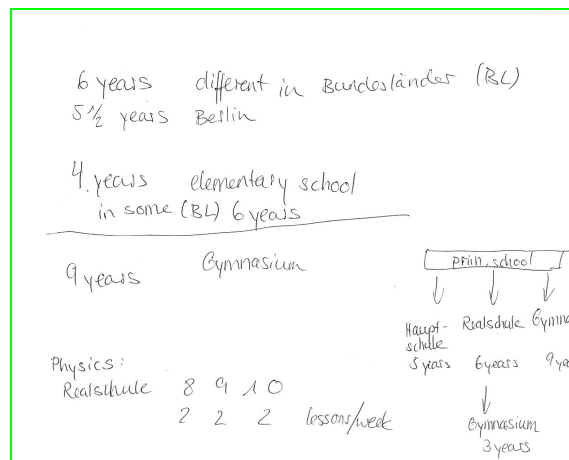 6 years different in Bundesländer (BL)
5 1/2 years Berlin
4 years elementary school
in some (BL) 6 years
9 years Gymnasium
prim. school
Haupt-
schule
Realschule
5 years 6 years
Gymnasium
3 years
Physics:
Realschule 8 9 10
2 2 2 lessons/week